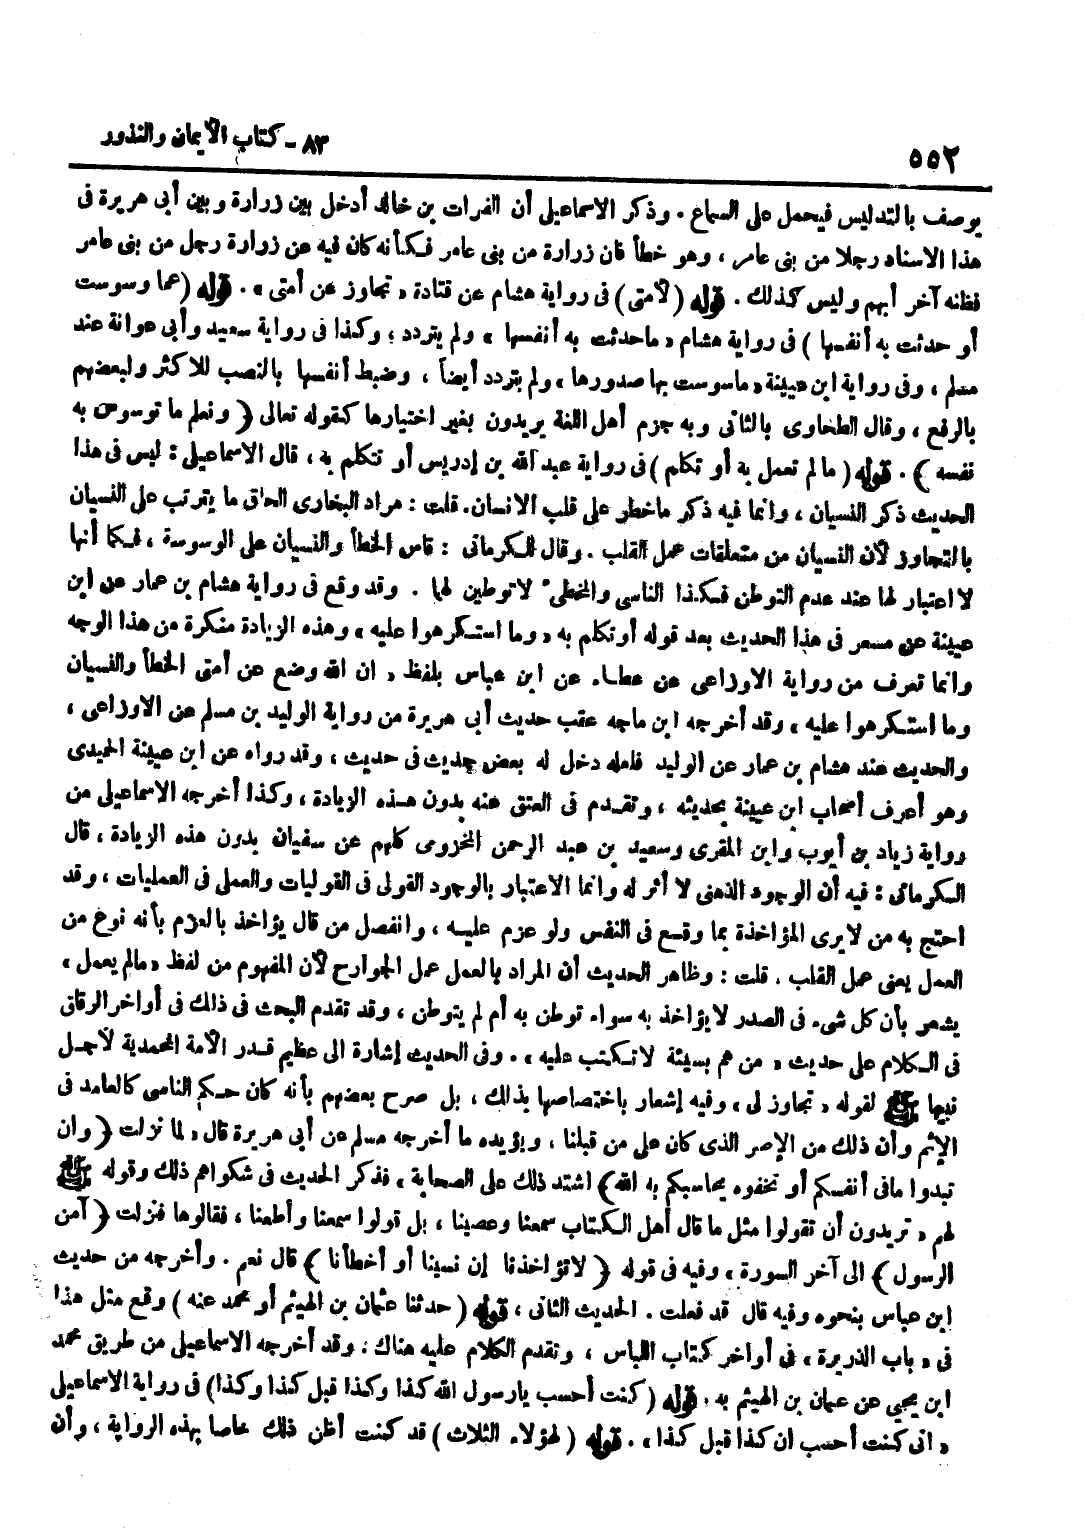 ٥٥٢
٨٣ - كتاب الأيمان والنذور
يوصف بالتدليس فيحمل على السماع . وذكر الاسماعيلى أن الفرات بن خالد أدخل بين زرارة وبين أبى هريرة فى
هذا الاسناد رجلا من بنى عامر ، وهو خطأ فان زرارة من بنى عامر فكأنه كان فيه عن زرارة رجل من بنى عامر
فظنه آخر أبهم وليس كذلك . قوله ( لأمتى ) فى رواية هشام عن قتادة « تجاوز عن أمتى » . قوله ( عما وسوست
أو حدثت به أنفسها ) فى رواية هشام « ماحدثت به أنفسها » ولم يتردد ، وكذا فى رواية سعيد وأبى عوانة عند
مسلم ، وفى رواية ابن عيينة « ماسوست بها صدورها » ولم يتردد أيضاً ، وضبط أنفسها بالنصب للاكثر ولبعضهم
بالرفع ، وقال الطحاوى بالثانى وبه جزم أهل اللغة يريدون بغير اختيارها كقوله تعالى ﴿ ونعلم ما توسوس به
نفسه ﴾ . قوله ( ما لم تعمل به أو تكلم ) فى رواية عبد الله بن إدريس أو تتكلم به ، قال الاسماعيلى : ليس فى هذا
الحديث ذكر النسيان ، وانما فيه ذكر ماخطر على قلب الانسان . قلت : مراد البخارى الحاق ما يترتب على النسيان
بالتجاوز لأن النسيان من متعلقات عمل القلب . وقال الكرمانى : قاس الخطأ والنسيان على الوسوسة ، فكما أنها
لا اعتبار لها عند عدم التوطن فكذا الناسى والمخطىء لاتوطين لهما . وقد وقع فى رواية هشام بن عمار عن ابن
عيينة عن مسعر فى هذا الحديث بعد قوله أو تكلم به « وما استكرهوا عليه » وهذه الزيادة منكرة من هذا الوجه
وانما تعرف من رواية الاوزاعى عن عطاء عن ابن عباس بلفظ « ان الله وضع عن أمتى الخطأ والنسيان
وما استكرهوا عليه » وقد أخرجه ابن ماجه عقب حديث أبى هريرة من رواية الوليد بن مسلم عن الاوزاعى ،
والحديث عند هشام بن عمار عن الوليد فلعله دخل له بعض حديث فى حديث ، وقد رواه عن ابن عيينة الحميدى
وهو أعرف أصحاب ابن عيينة بحديثه ، وتقدم فى العتق عنه بدون هذه الزيادة ، وكذا أخرجه الاسماعيلى من
رواية زياد بن أيوب وابن المقرى وسعيد بن عبد الرحمن المخزومى كلهم عن سفيان بدون هذه الزيادة ، قال
الكرمانى : فيه أن الوجود الذهنى لا أثر له وانما الاعتبار بالوجود القولى فى القوليات والعملى فى العمليات ، وقد
احتج به من لا يرى المؤاخذة بما وقع فى النفس ولو عزم عليه ، وانفصل من قال يؤاخذ بالعزم بأنه نوع من
العمل يعنى عمل القلب . قلت : وظاهر الحديث أن المراد بالعمل عمل الجوارح لأن المفهوم من لفظ « مالم يعمل »
يشعر بأن كل شىء فى الصدر لا يؤاخذ به سواء توطن به أم لم يتوطن ، وقد تقدم البحث فى ذلك فى أواخر الرقاق
فى الكلام على حديث « من هم بسيئة لا تكتب عليه » . وفى الحديث إشارة الى عظيم قدر الأمة المحمدية لأجل
نبيها ﷺ لقوله « تجاوز لى » وفيه إشعار باختصاصها بذلك ، بل صرح بعضهم بأنه كان حكم الناسى كالعامد فى
الإثم وأن ذلك من الإصر الذى كان على من قبلنا ، ويؤيده ما أخرجه مسلم عن أبى هريرة قال « لما نزلت ﴿ وان
تبدوا مافى أنفسكم أو تخفوه يحاسبكم به الله ﴾ اشتد ذلك على الصحابة » فذكر الحديث فى شكواهم ذلك وقوله ﷺ
لهم « تريدون أن تقولوا مثل ما قال أهل الكتاب سمعنا وعصينا ، بل قولوا سمعنا وأطعنا ، فقالوها فنزلت ﴿ آمن
الرسول ﴾ الى آخر السورة » وفيه فى قوله ﴿ لا تؤاخذنا إن نسينا أو أخطأنا ﴾ قال نعم . وأخرجه من حديث
ابن عباس بنحوه وفيه قال قد فعلت . الحديث الثانى ، قوله ( حدثنا عثمان بن الهيثم أو محمد عنه ) وقع مثل هذا
فى « باب الذريرة » فى أواخر كتاب اللباس ، وتقدم الكلام عليه هناك ، وقد أخرجه الاسماعيلى من طريق محمد
ابن يحيى عن عثمان بن الهيثم به . قوله ( كنت أحسب يارسول الله كذا وكذا قبل كذا وكذا ) فى رواية الاسماعيلى
« انى كنت أحسب ان كذا قبل كذا » . قوله ( لهؤلاء الثلاث ) قد كنت أظن ذلك خاصا بهذه الرواية ، وأن